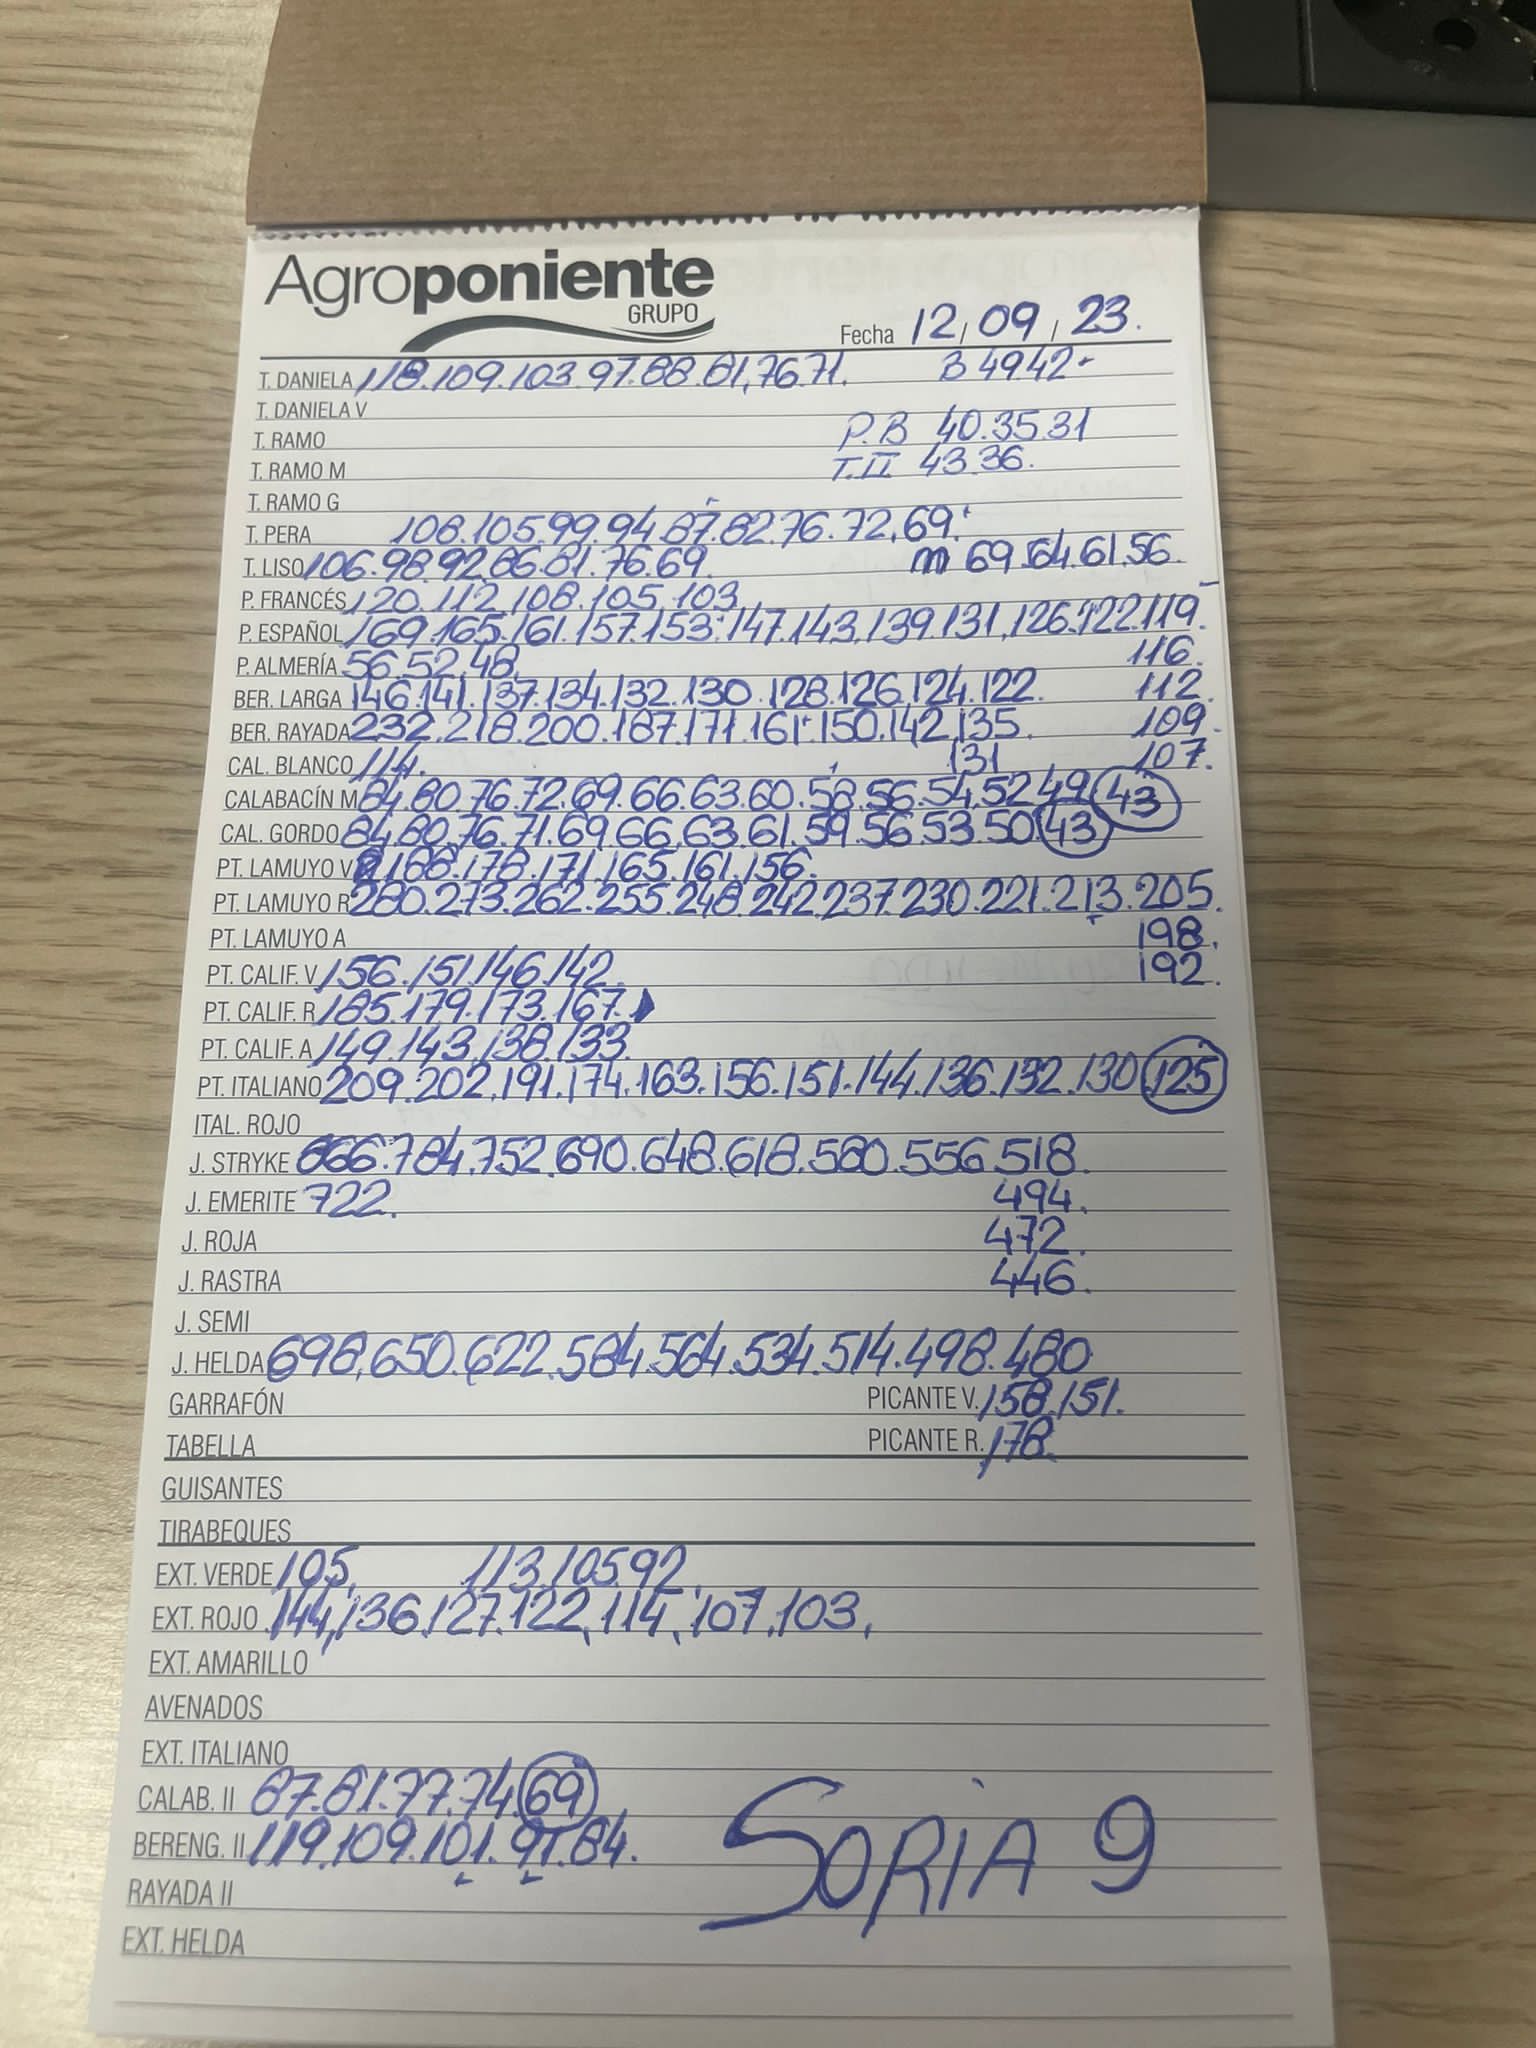 Agroponiente
GRUPO
Fecha 12/09/23.
T. DANIELA 118.109.103.97.88.81,76.71. B 49.42-
T. DANIELA V
T. RAMO P.B 40.35.31
T. RAMO M T.II 43.36.
T. RAMO G
T. PERA 108.105.99.94.87.82.76.72.69.
T. LISO 106.98.92.86.81.76.69. m 69.64.61.56.
P. FRANCÉS 120.112.108.105.103
P. ESPAÑOL 169.165.161.157.153.147.143.139.131.126.122.119.
P. ALMERÍA 56.52.48. 116.
BER. LARGA 146.141.137.134.132.130.128.126.124.122. 112.
BER. RAYADA 232.218.200.187.171.161.150.142.135. 109.
CAL. BLANCO 114. 131 107.
CALABACÍN M 84.80.76.72.69.66.63.60.58.56.54.52.49 43
CAL. GORDO 84.80.76.71.69.66.63.61.59.56.53.50.43
PT. LAMUYO V 188.178.171.165.161.156.
PT. LAMUYO R 280.273.262.255.248.242.237.230.221.213.205.
PT. LAMUYO A 198.
PT. CALIF. V 156.151.146.142. 192.
PT. CALIF. R 185.179.173.167.
PT. CALIF. A 149.143.138.133.
PT. ITALIANO 209.202.191.174.163.156.151.144.136.132.130 125
ITAL. ROJO
J. STRYKE 866.784.752.690.648.618.580.556.518.
J. EMERITE 722. 494.
J. ROJA 472.
J. RASTRA 446.
J. SEMI
J. HELDA 698.650.622.584.564.534.514.498.480
GARRAFÓN PICANTE V. 158.151.
TABELLA PICANTE R. 178.
GUISANTES
TIRABEQUES
EXT. VERDE 105. 113.105.92.
EXT. ROJO 144.136.127.122.114.107.103.
EXT. AMARILLO
AVENADOS
EXT. ITALIANO
CALAB. II 87.81.77.74.69
BERENG. II 119.109.101.91.84.
SORIA 9
RAYADA II
EXT. HELDA